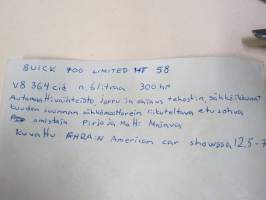 BUICK 700 LIMITED HT 58
V8 364 cid n. 6 litraa 300 hp
Automaattivaihteisto, jarru ja ohjaus tehostin, sähköikkunat
kuuden suunnan sähkömoottorein liikuteltava etusohva
omistaja Pirjo ja Matti Majava
kuvattu FHRA:N American car showssa 12.5-7